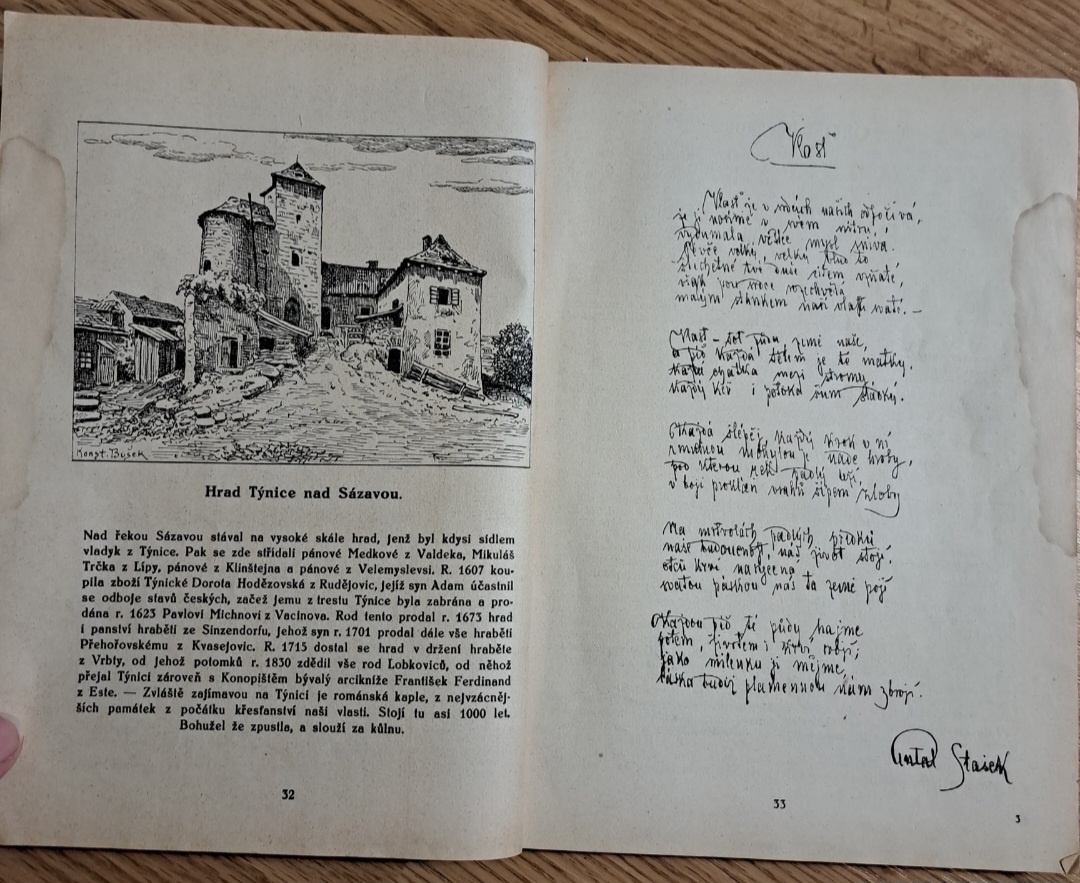 Konst. Bušek
Hrad Týnice nad Sázavou.
Nad řekou Sázavou stával na vysoké skále hrad, jenž byl kdysi sídlem
vladyk z Týnice. Pak se zde střídali pánové Medkové z Valdeka, Mikuláš
Trčka z Lípy, pánové z Klinštejna a pánové z Velemyslevsi. R. 1607 kou-
pila zboží Týnické Dorota Hodězovská z Rudějovic, jejíž syn Adam účastnil
se odboje stavů českých, začež jemu z trestu Týnice byla zabrána a pro-
dána r. 1623 Pavlovi Michnovi z Vacinova. Rod tento prodal r. 1673 hrad
i panství hraběti ze Sinzendorfu, jehož syn r. 1701 prodal dále vše hraběti
Přehořovskému z Kvasejovic. R. 1715 dostal se hrad v držení hraběte
z Vrbty, od jehož potomků r. 1830 zdědil vše rod Lobkoviců, od něhož
přejal Týnici zároveň s Konopištěm bývalý arcikníže František Ferdinand
z Este. — Zvláště zajímavou na Týnici je románská kaple, z nejvzácněj-
ších památek z počátku křesťanství naší vlasti. Stojí tu asi 1000 let.
Bohužel že zpustla, a slouží za kůlnu.
32
Vlasť
Vlasť je v srdcích našich
je ji nosíme v svém nitru,
mysl snivá.
velký, velký
duše
naší vlasti
Vlasť – toť půda, země naše,
a píď každá je to matky,
každá chatka mezi stromy,
každý keř i potoka šum sladký.
Každá šlépěj, každý krok v ní
mohylou je nade hroby,
pod kterou rek padlý leží,
v boji vrahů šípem zloby
Na mrtvolách padlých předků
naše budoucnost, náš život stojí.
krví
svatou páskou nás ta země pojí
Každou píď té půdy hajme
potem, životem i krví svojí;
jako milenku ji mějme,
láska budiž plamennou nám zbrojí.
Antal Stašek
33
3